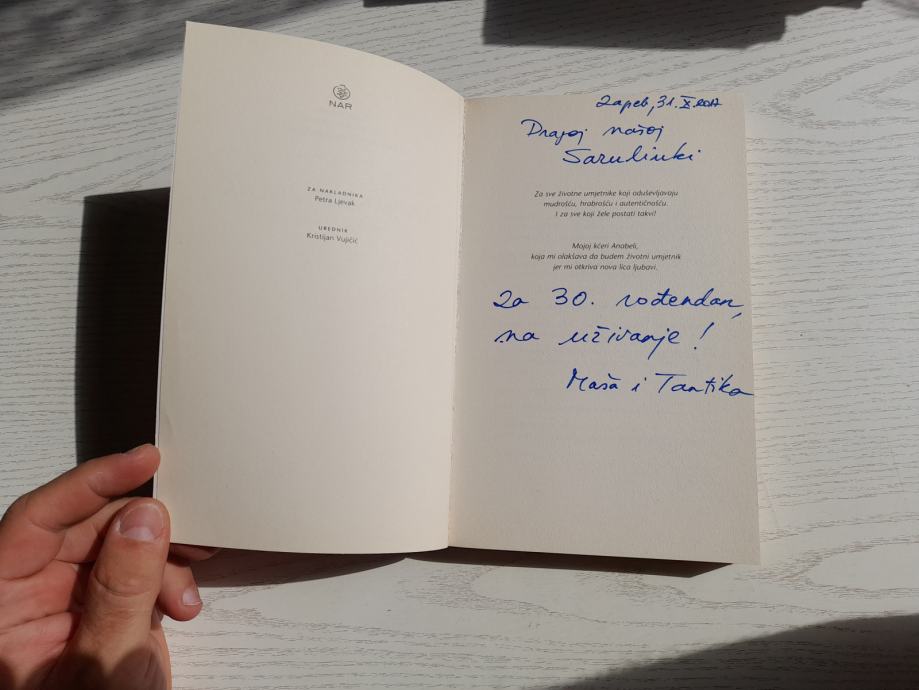 NAR
ZA NAKLADNIKA
Petra Ljevak
UREDNIK
Kristijan Vujičić
Zagreb, 31. X. 2017
Dragoj našoj
Sarulinki
Za sve životne umjetnike koji oduševljavaju
mudrošću, hrabrošću i autentičnošću.
I za sve koji žele postati takvi!
Mojoj kćeri Anabeli,
koja mi olakšava da budem životni umjetnik
jer mi otkriva nova lica ljubavi.
Za 30. rođendan,
na uživanje!
Maša i Tantika